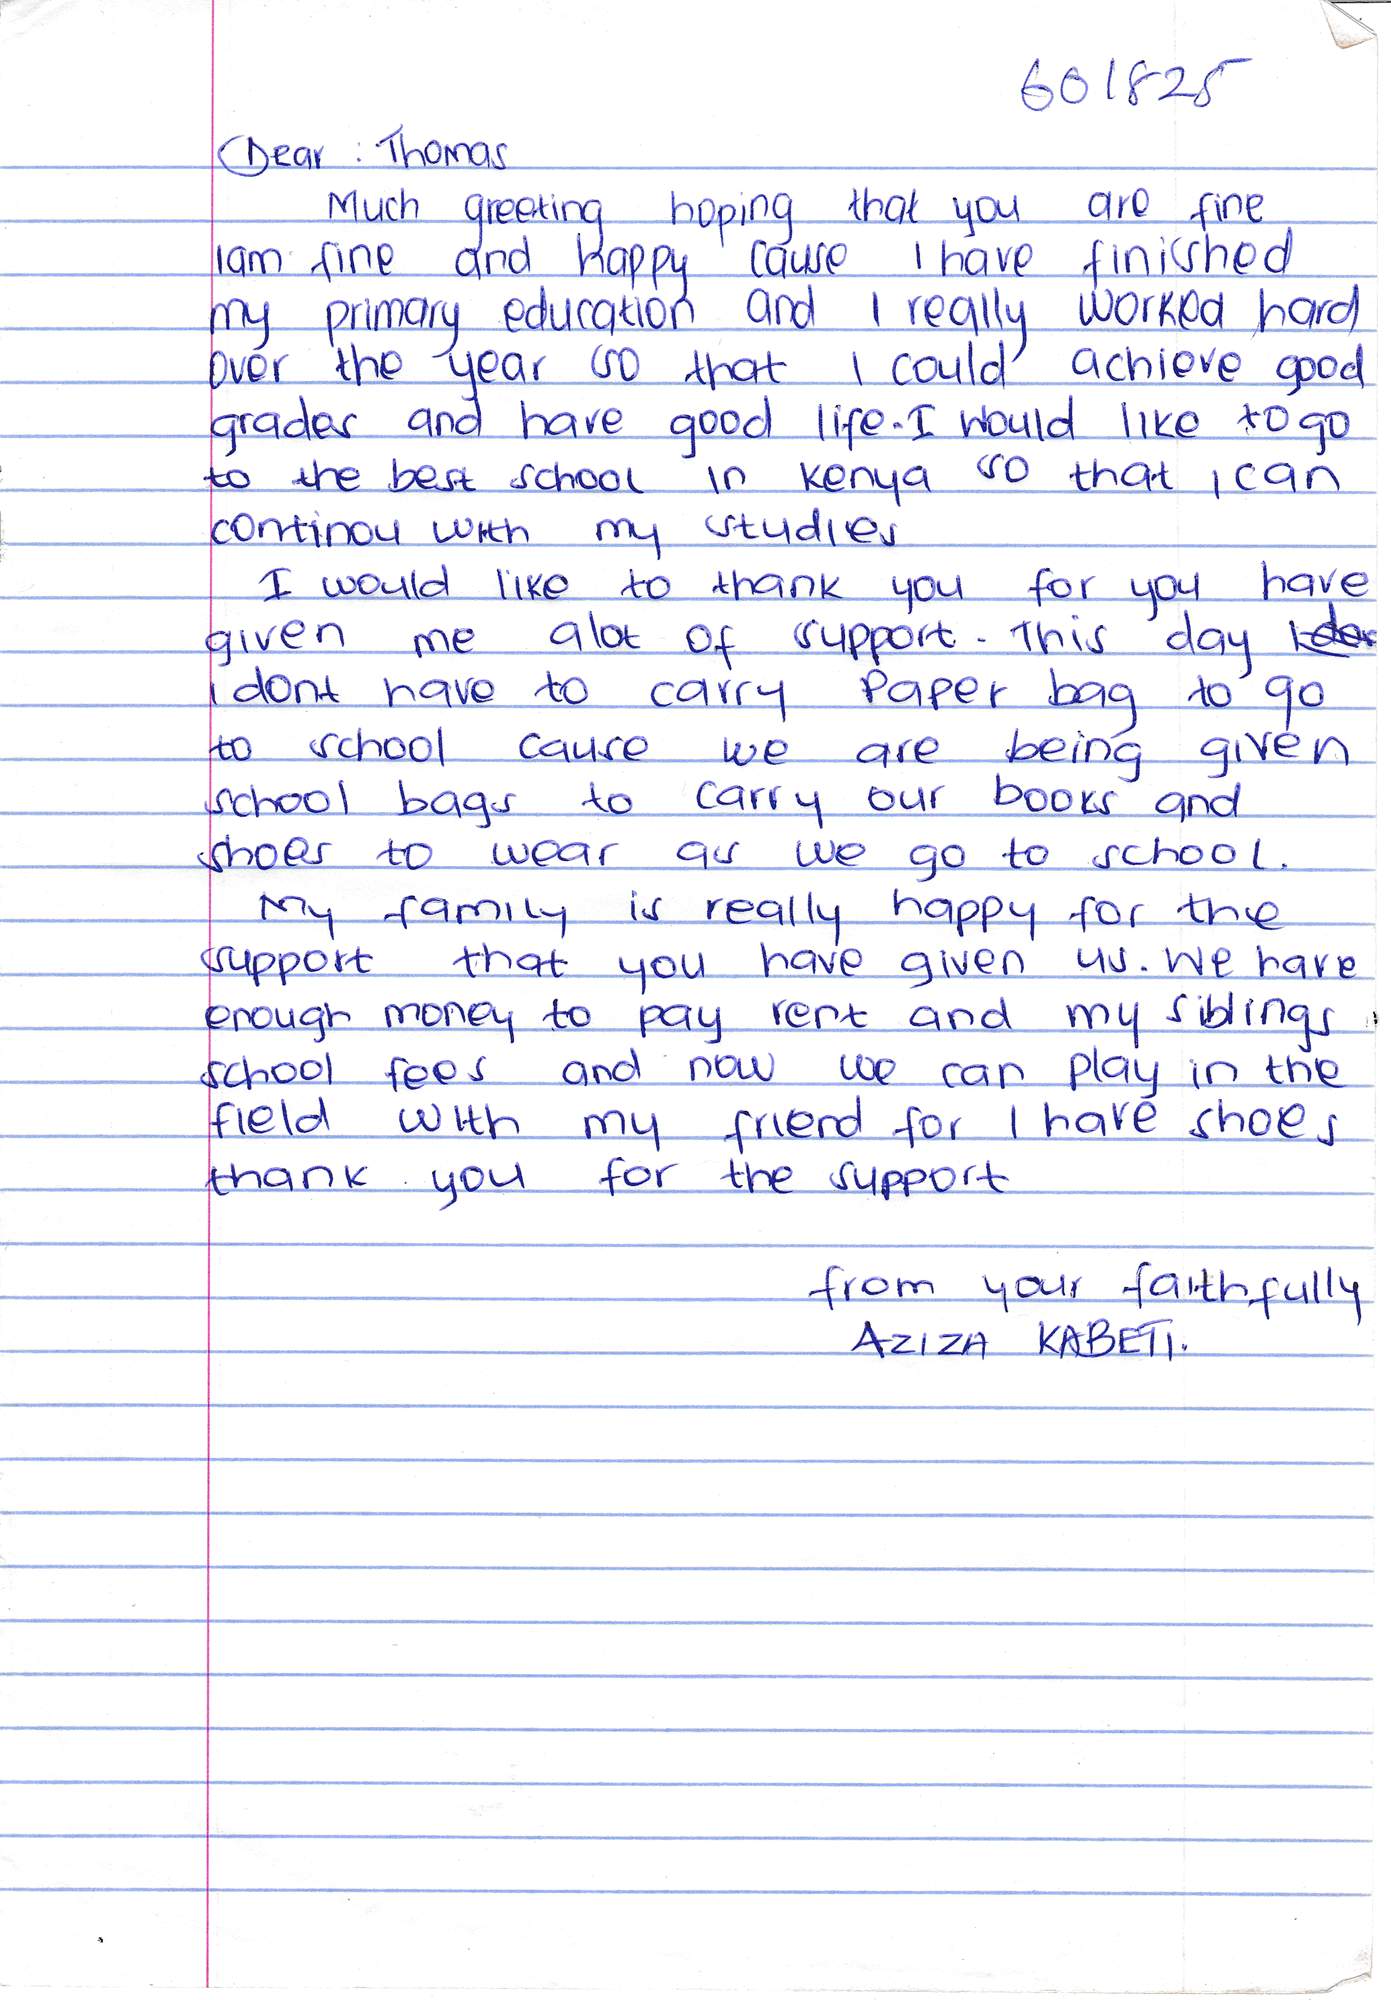 601825
Dear : Thomas
Much greeting hoping that you are fine
I am fine and happy cause I have finished
my primary education and I really worked hard
over the year so that I could achieve good
grades and have good life. I would like to go
to the best school in Kenya so that I can
continou with my studies
I would like to thank you for you have
given me alot of support. This day
I dont have to carry Paper bag to go
to school cause we are being given
school bags to carry our books and
shoes to wear as we go to school.
My family is really happy for the
support that you have given us. We have
enough money to pay rent and my siblings
school fees and now we can play in the
field with my friend for I have shoes
thank you for the support
from your faithfully
AZIZA KABETI.